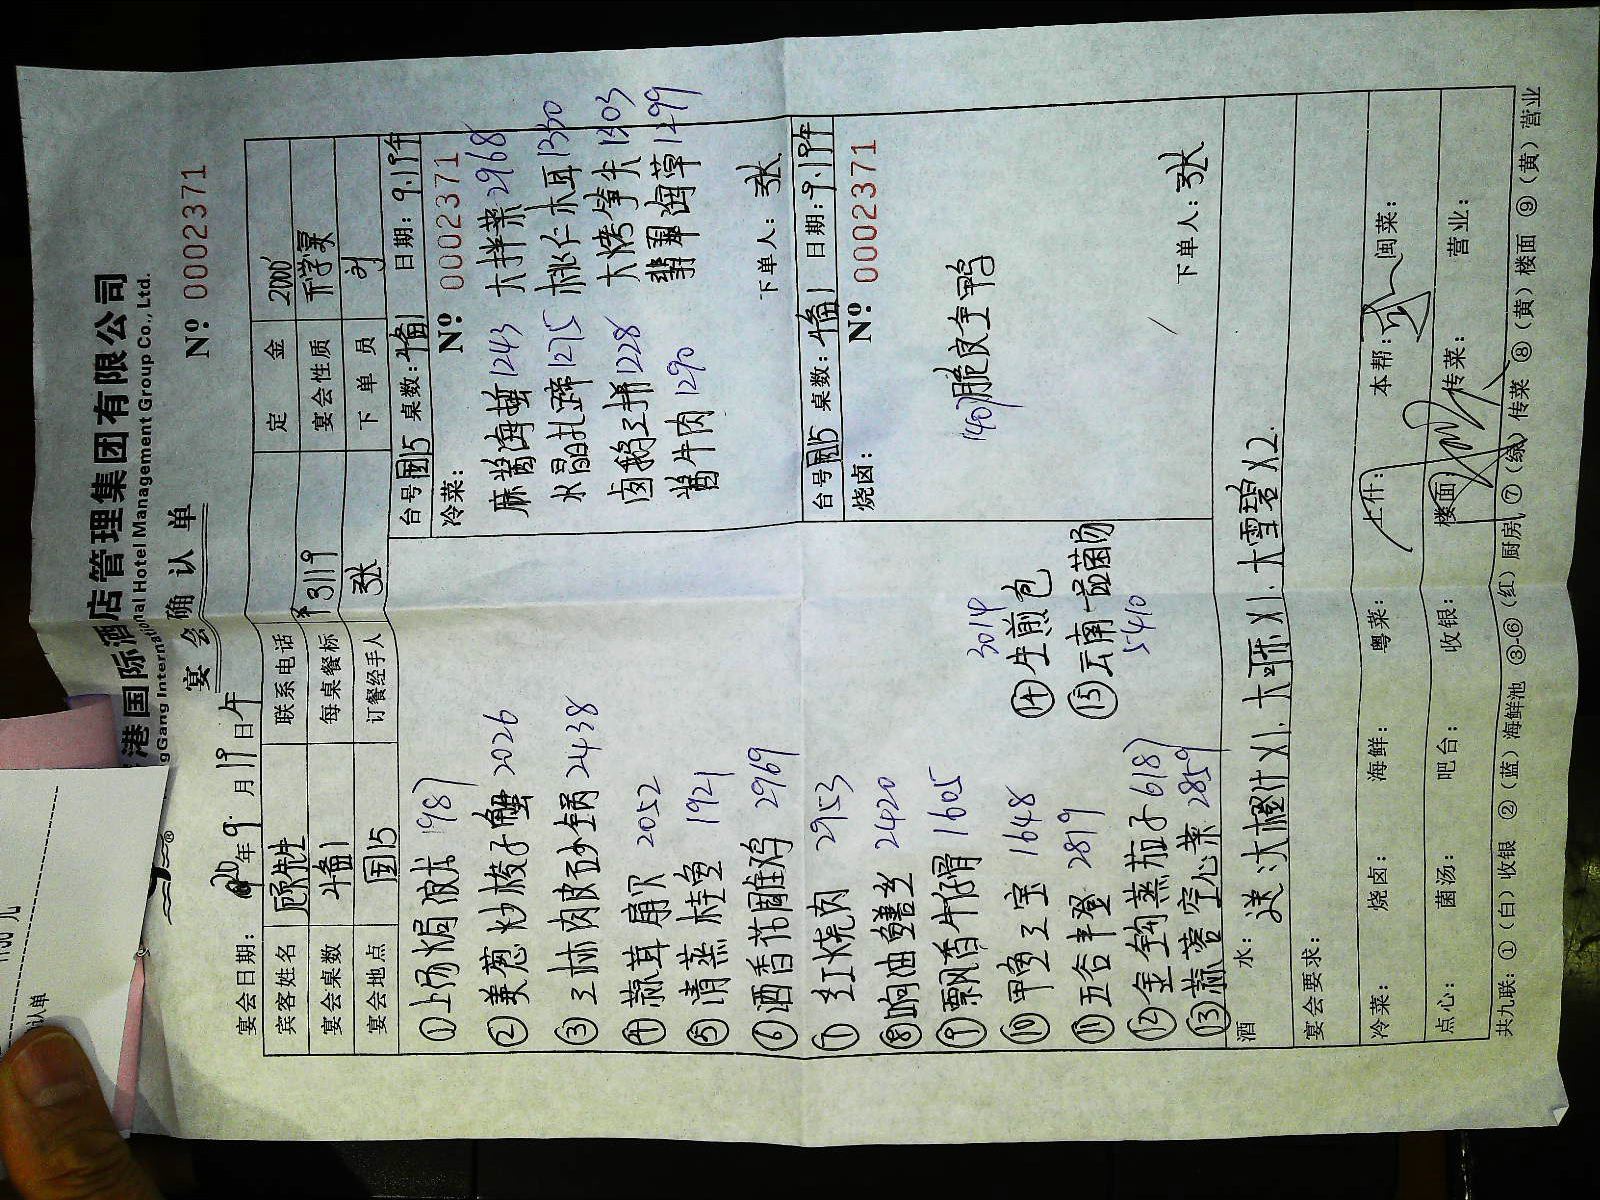 港国际酒店管理集团有限公司
gGang International Hotel Management Group Co., Ltd.
宴会确认单
Nº 0002371
宴会日期: 年 9 月 19 日 午
宾客姓名 顾先生 联系电话 定金 2000
宴会桌数 1备1 每桌餐标 ¥3119 宴会性质 升学宴
宴会地点 国15 订餐经手人 张 下单员
台号 国15 桌数: 1备1 日期: 9.19午
冷菜: Nº 0002371
麻酱海蜇 1243 大拌菜 2968
水晶扎蹄 1275 桃仁木耳 1330
卤鹅三拼 1228 大烤笋尖 1303
酱牛肉 1290 翡翠海草 1299
下单人: 张
台号 国15 桌数: 1备1 日期: 9.19午
烧卤: Nº 0002371
1407 脆皮全鸭
下单人: 张
① 上汤焗波龙 1987
② 姜葱炒梭子蟹 2026
③ 三林肉皮砂锅 2438
④ 蒜茸扇贝 2052
⑤ 清蒸桂鱼 1921
⑥ 酒香花雕鸡 2969
⑦ 红烧肉 2953
⑧ 响油鳝丝 2420
⑨ 飘香牛仔骨 1605
⑩ 甲鱼三宝 1648
⑪ 五谷丰登 2819
⑫ 金钩蒸茄子 6187
⑬ 蒜蓉空心菜 2859
⑭ 生煎包 3014
⑮ 云南一品菌汤 5410
酒水: 送:大橙汁X1. 大可乐X1. 大雪碧X2.
宴会要求:
冷菜: 烧卤: 海鲜: 粤菜: 上什: 本帮: 闽菜:
点心: 菌汤: 吧台: 收银: 楼面: 传菜: 营业:
共九联: ①(白)收银 ②(蓝)海鲜池 ③-⑥(红)厨房 ⑦(绿)传菜 ⑧(黄)楼面 ⑨(黄)营业
认单